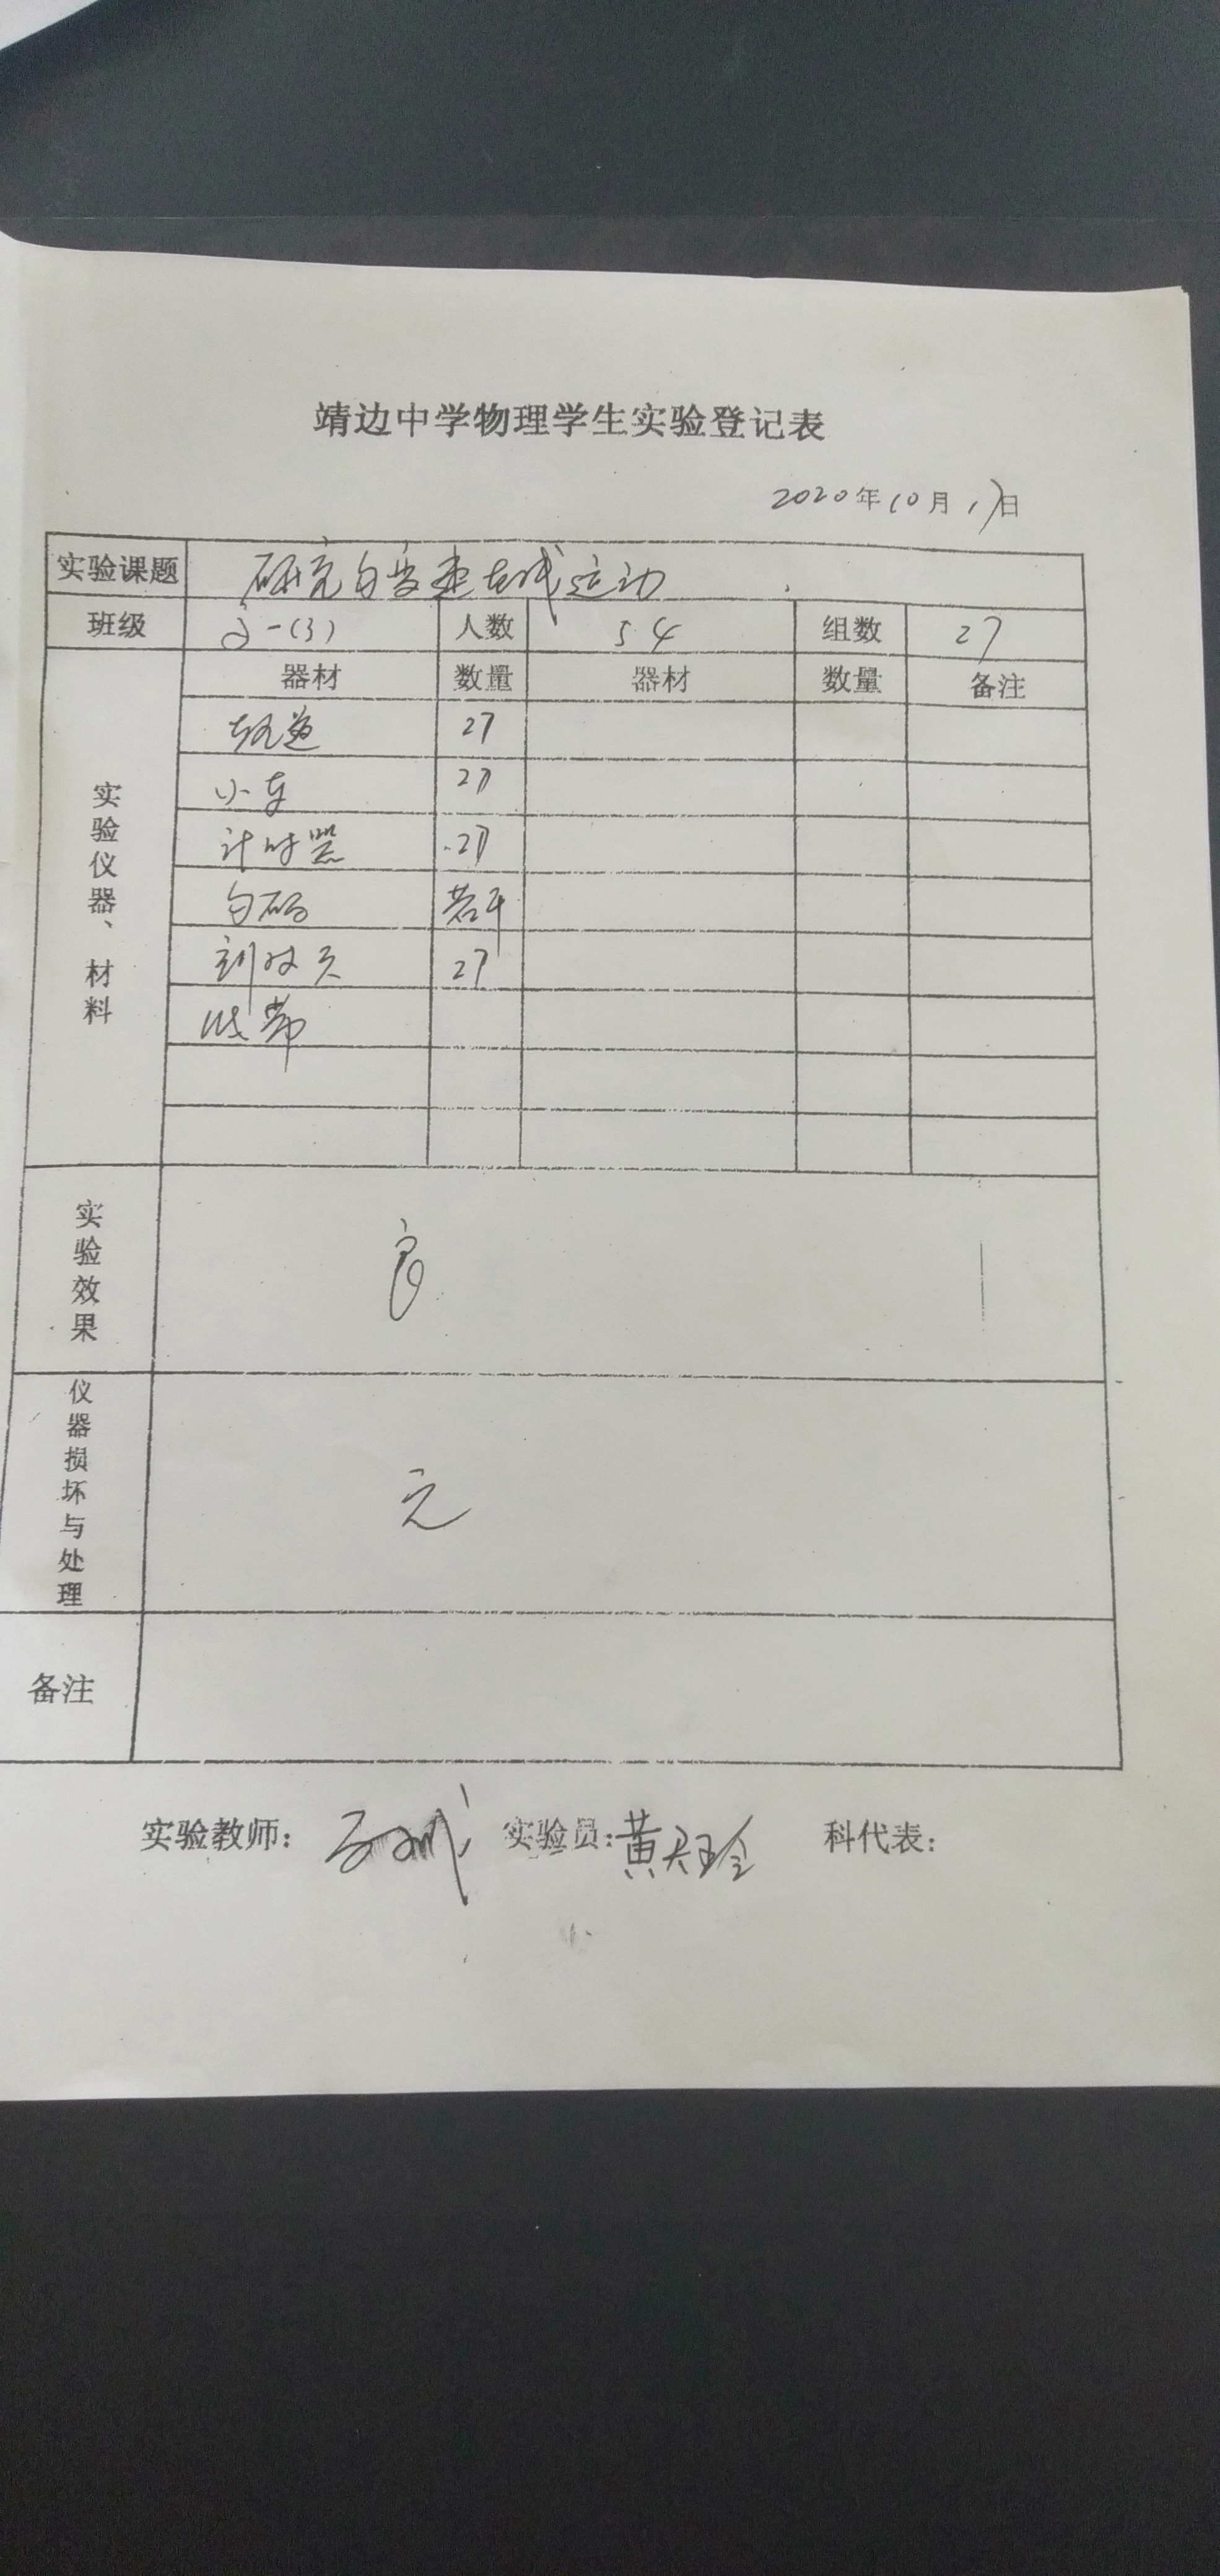 靖边中学物理学生实验登记表
2020年10月17日
实验课题 研究匀变速直线运动
班级 高一(3) 人数 54 组数 27
实验仪器、材料
器材 数量 器材 数量 备注
轨道 27
小车 27
计时器 27
勾码 若干
刻度尺 27
纸带
实验效果 良
仪器损坏与处理 无
备注
实验教师: 实验员: 黄 科代表: